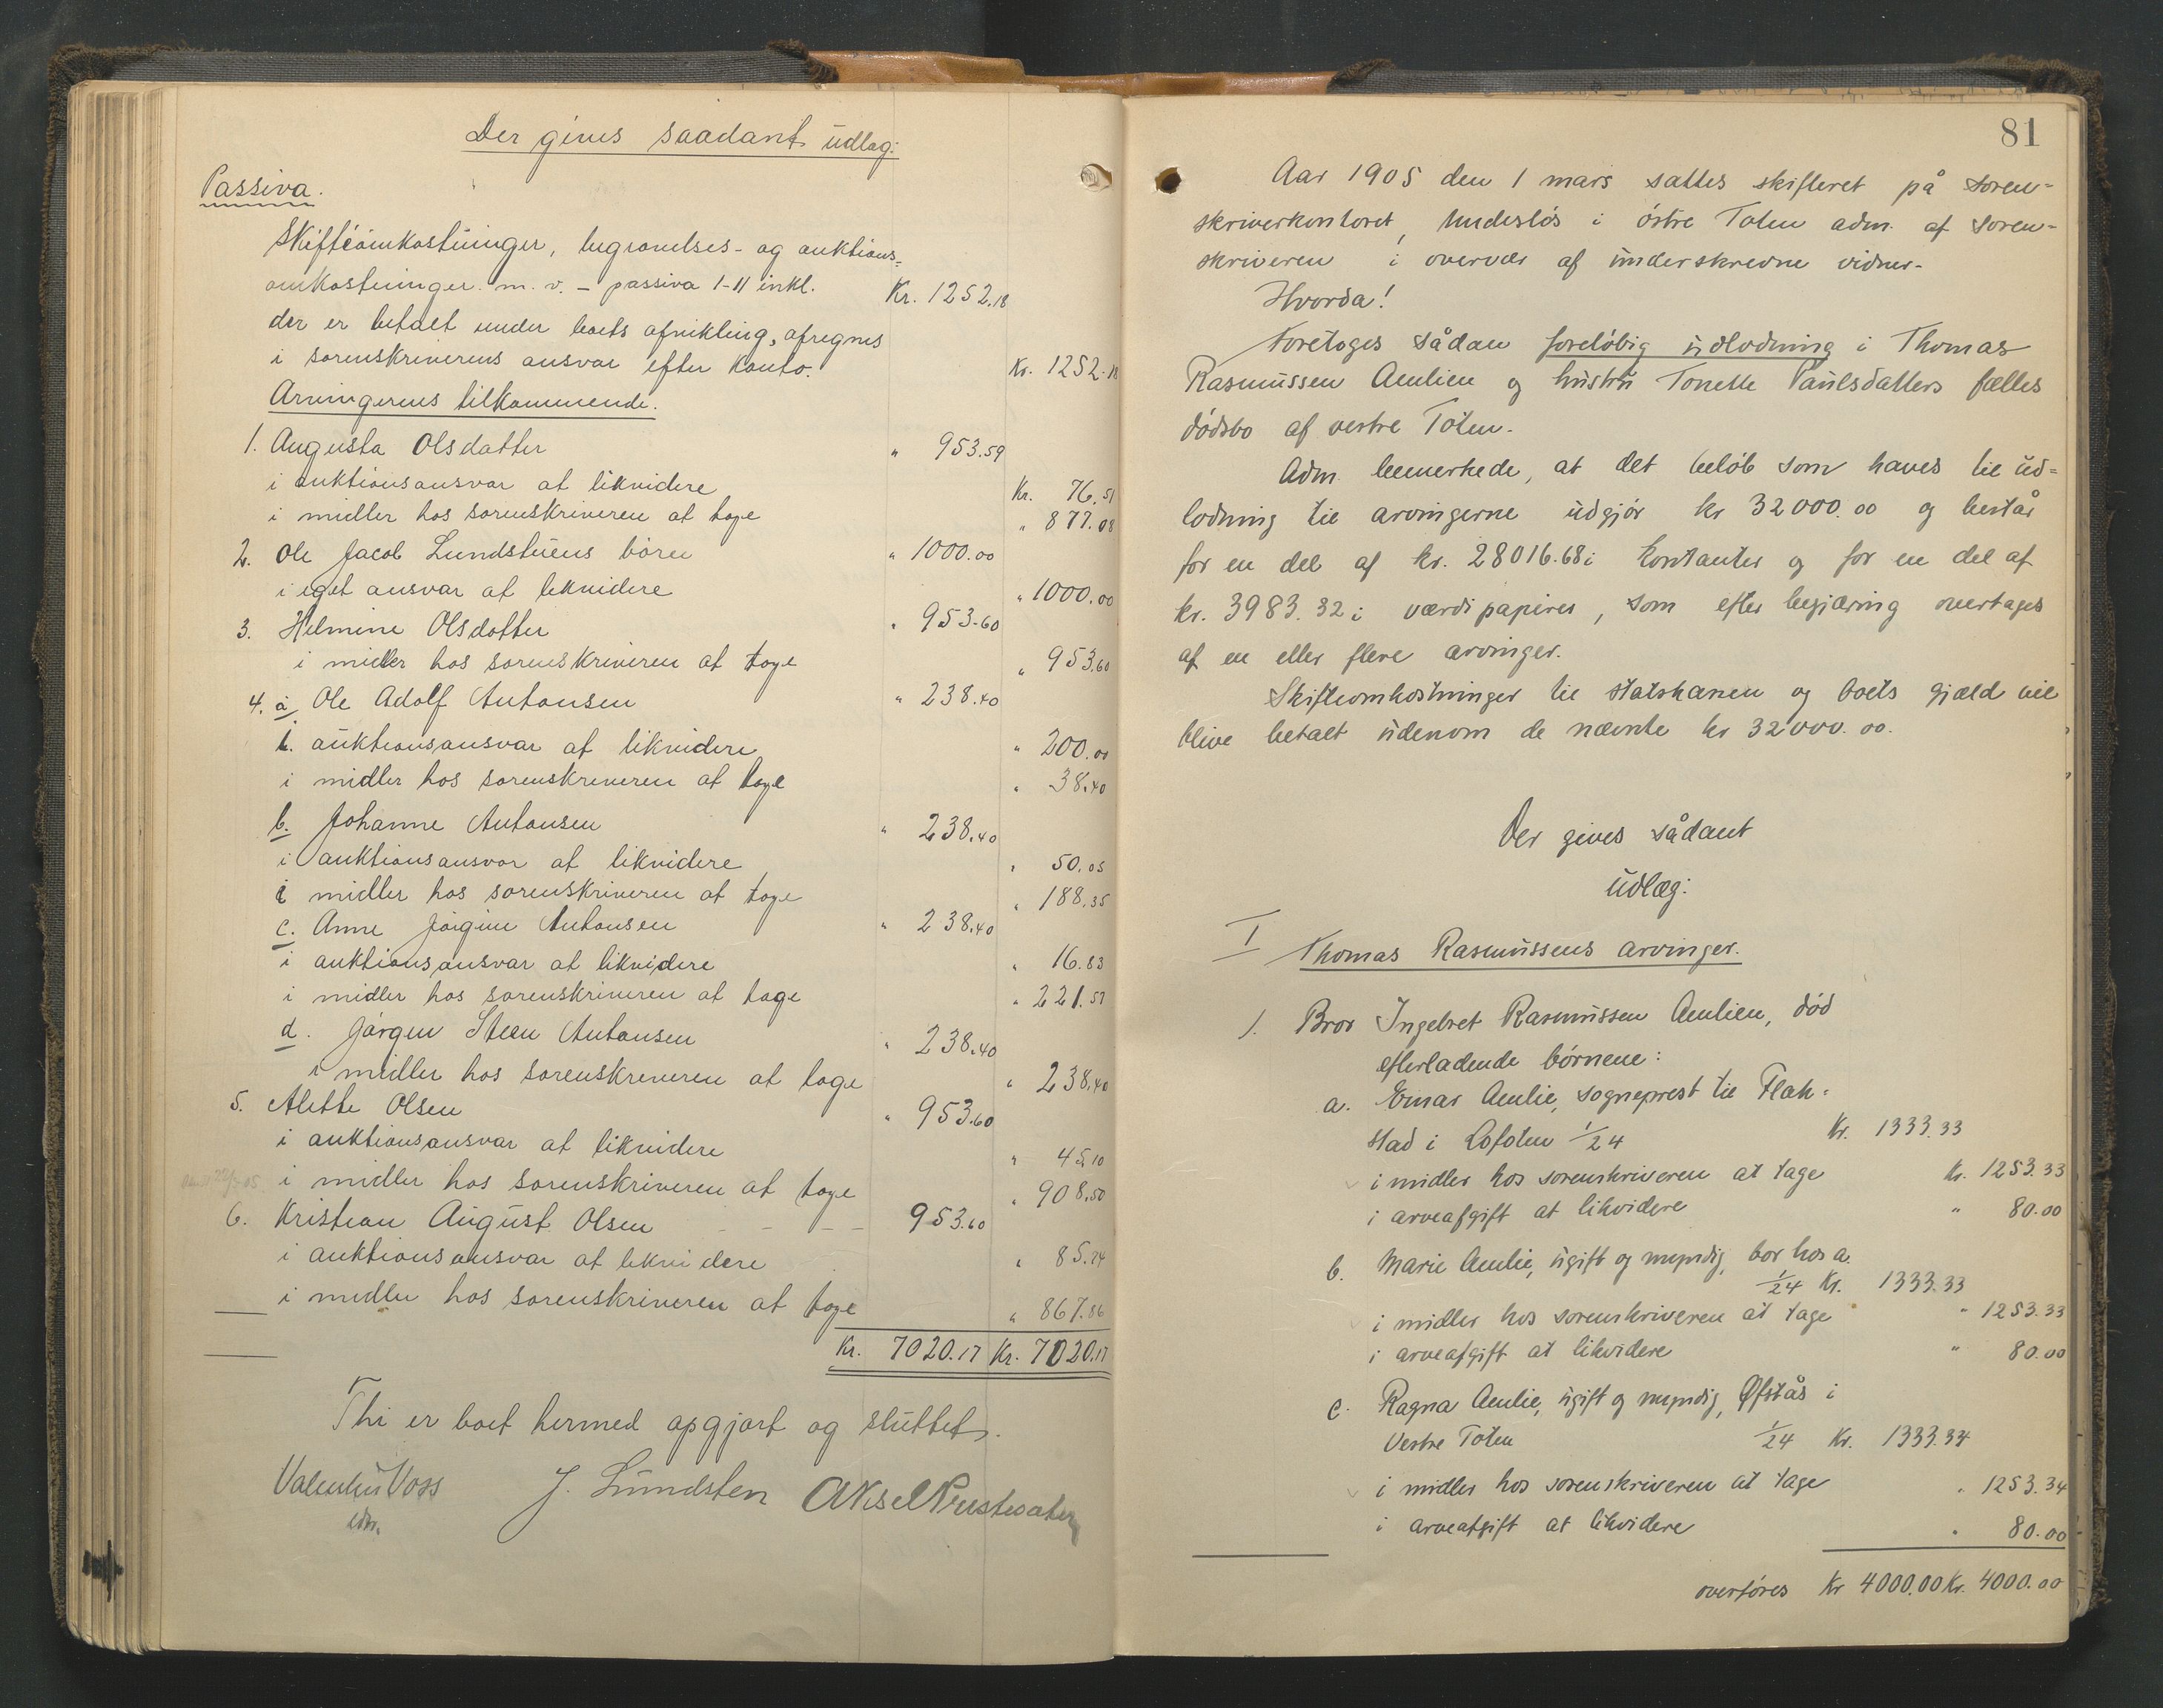 Der gives saadant udlæg:
Passiva.
Skifteomkostninger, begravelses- og auktions-
omkostninger m. v. – passiva 1-11 inkl. Kr. 1252.18
der er betalt under boets afvikling, afregnes
i sorenskriverens ansvar efter konto. Kr. 1252.18
Arvingernes tilkommende.
1. Augusta Olsdatter " 953.59
i auktionsansvar at likvidere Kr. 76.51
i midler hos sorenskriveren at tage " 877.08
2. Ole Jacob Lundstuens børn " 1000.00
i eget ansvar at likvidere " 1000.00
3. Helmine Olsdatter " 953.60
i midler hos sorenskriveren at tage " 953.60
4. a. Ole Adolf Antonsen " 238.40
i auktionsansvar at likvidere " 200.00
i midler hos sorenskriveren at tage " 38.40
b. Johanne Antonsen " 238.40
i auktionsansvar at likvidere " 50.05
i midler hos sorenskriveren at tage " 188.35
c. Anne Jørgine Antonsen " 238.40
i auktionsansvar at likvidere " 16.83
i midler hos sorenskriveren at tage " 221.57
d. Jørgen Steen Antonsen " 238.40
i midler hos sorenskriveren at tage " 238.40
5. Alette Olsen " 953.60
i auktionsansvar at likvidere " 45.10
i midler hos sorenskriveren at tage " 908.50
6. Kristian August Olsen 953.60
i auktionsansvar at likvidere " 85.74
i midler hos sorenskriveren at tage " 867.86
Kr. 7020.17 Kr. 7020.17
Thi er boet hermed opgjort og sluttet.
Valentin Voss J. Lundsten Aksel Prestesæter
81
Aar 1905 den 1 mars sattes skifteret på soren-
skriverkontoret, Undeslös i östre Toten adm. af soren-
skriveren i overvær af underskrevne vidner.
Hvorda!
Foretoges sådan foreløbig udlodning i Thomas
Rasmussen Amlien og hustru Tonette Paulsdatters fælles
dødsbo af vestre Toten.
Adm. bemerkede, at det beløb som haves til ud-
lodning til arvingerne udgjør kr 32000.00 og består
for en del af kr. 28016.68 i kontanter og for en del af
kr. 3983.32 i værdipapirer, som efter begjæring overtages
af en eller flere arvinger.
Skifteomkostninger til statskassen og boets gjæld vil
blive betalt udenom de nævnte kr 32000.00.
Der gives sådant
udlæg:
I Thomas Rasmussens arvinger.
1. Bror Ingebret Rasmussen Amlien, död
efterladende børnene:
a. Einar Amlie, sogneprest til Flak-
stad i Lofoten 1/24 Kr. 1333.33
i midler hos sorenskriveren at tage Kr. 1253.33
i arveafgift at likvidere " 80.00
b. Marie Amlie, ugift og myndig, bor hos a.
1/24 Kr. 1333.33
i midler hos sorenskriveren at tage " 1253.33
i arveafgift at likvidere " 80.00
c. Ragna Amlie, ugift og myndig, Øfstås i
Vestre Toten 1/24 Kr. 1333.34
i midler hos sorenskriveren at tage " 1253.34
i arveafgift at likvidere " 80.00
overføres Kr 4000.00 Kr. 4000.00